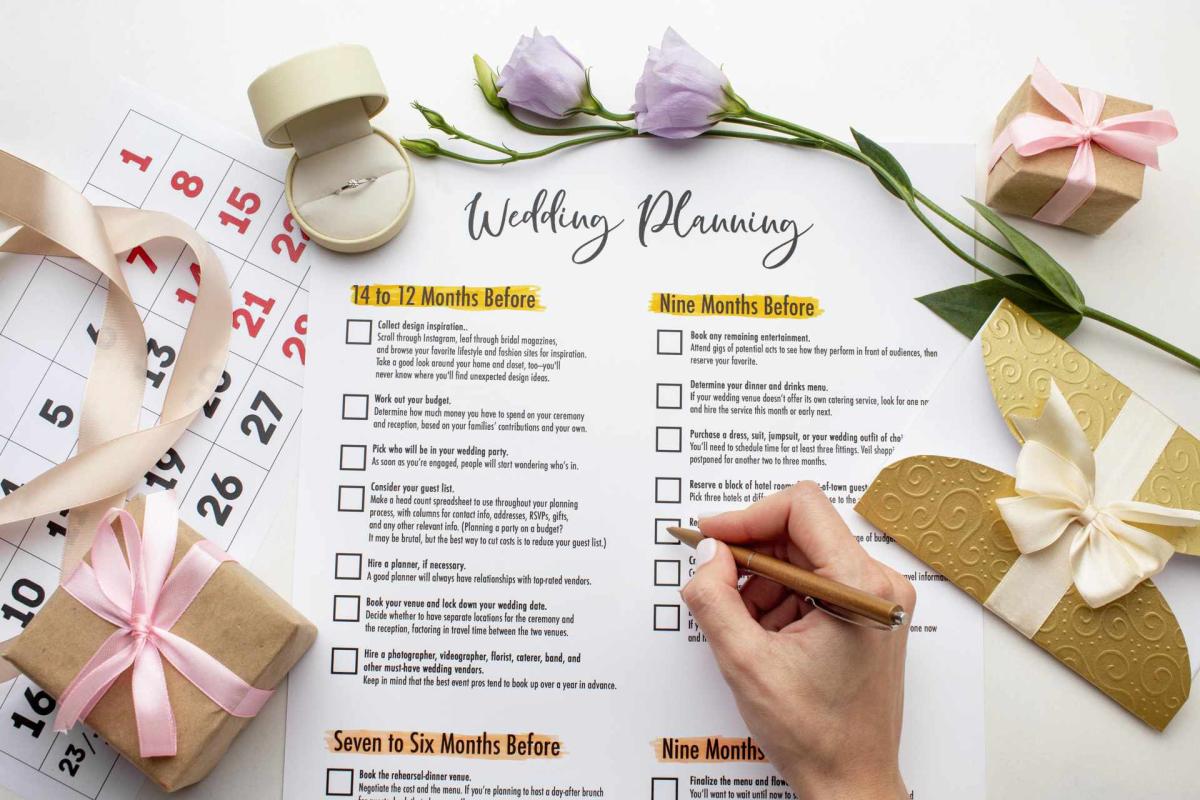 Wedding Planning
14 to 12 Months Before
Collect design inspiration..
Scroll through Instagram, leaf through bridal magazines,
and browse your favorite lifestyle and fashion sites for inspiration.
Take a good look around your home and closet, too—you'll
never know where you'll find unexpected design ideas.
Work out your budget.
Determine how much money you have to spend on your ceremony
and reception, based on your families' contributions and your own.
Pick who will be in your wedding party.
As soon as you're engaged, people will start wondering who's in.
Consider your guest list.
Make a head count spreadsheet to use throughout your planning
process, with columns for contact info, addresses, RSVPs, gifts,
and any other relevant info. (Planning a party on a budget?
It may be brutal, but the best way to cut costs is to reduce your guest list.)
Hire a planner, if necessary.
A good planner will always have relationships with top-rated vendors.
Book your venue and lock down your wedding date.
Decide whether to have separate locations for the ceremony and
the reception, factoring in travel time between the two venues.
Hire a photographer, videographer, florist, caterer, band, and
other must-have wedding vendors.
Keep in mind that the best event pros tend to book up over a year in advance.
Seven to Six Months Before
Book the rehearsal-dinner venue.
Negotiate the cost and the menu. If you're planning to host a day-after brunch
Nine Months Before
Book any remaining entertainment.
Attend gigs of potential acts to see how they perform in front of audiences, then
reserve your favorite.
Determine your dinner and drinks menu.
If your wedding venue doesn't offer its own catering service, look for one
and hire the service this month or early next.
Purchase a dress, suit, jumpsuit, or your wedding outfit of
You'll need to schedule time for at least three fittings. Veil
postponed for another two to three months.
Reserve a block of hotel
Pick three hotels at
to the
of
one now
Nine Months
Finalize the menu and
You'll want to wait until now to
1 8 15
7 21
6 13 20 27
5 19 26
10
16
23